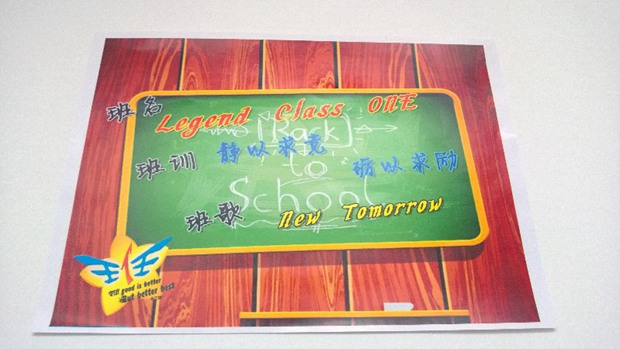 班名 Legend Class ONE
[Back]
班训 静以求竞 砺以求励
to
School
班歌 New Tomorrow
Till good is better
But better best